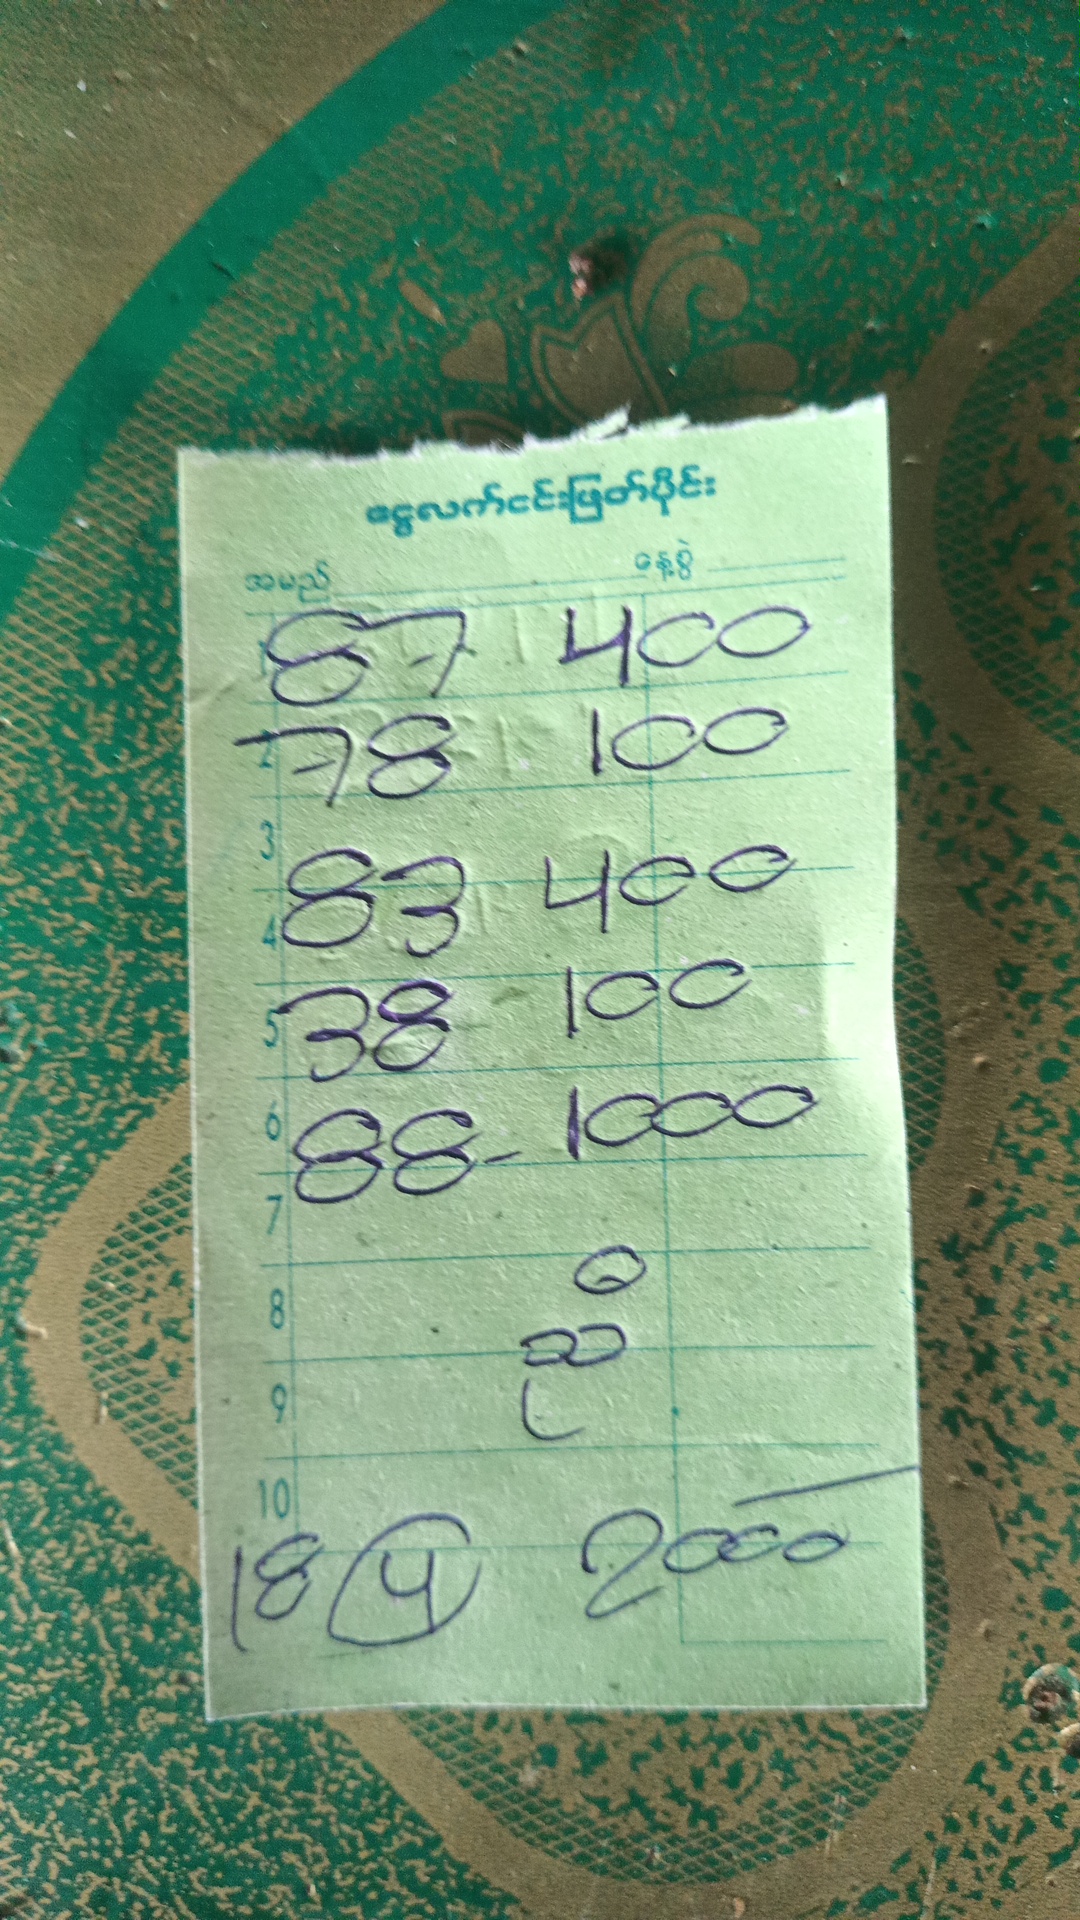 ငွေလက်ငင်းဖြတ်ပိုင်း
အမည် နေ့စွဲ
1 87 400
2 78 100
3
4 83 400
5 38 - 100
6 88 - 1000
7
8
9
10
18 4 2000